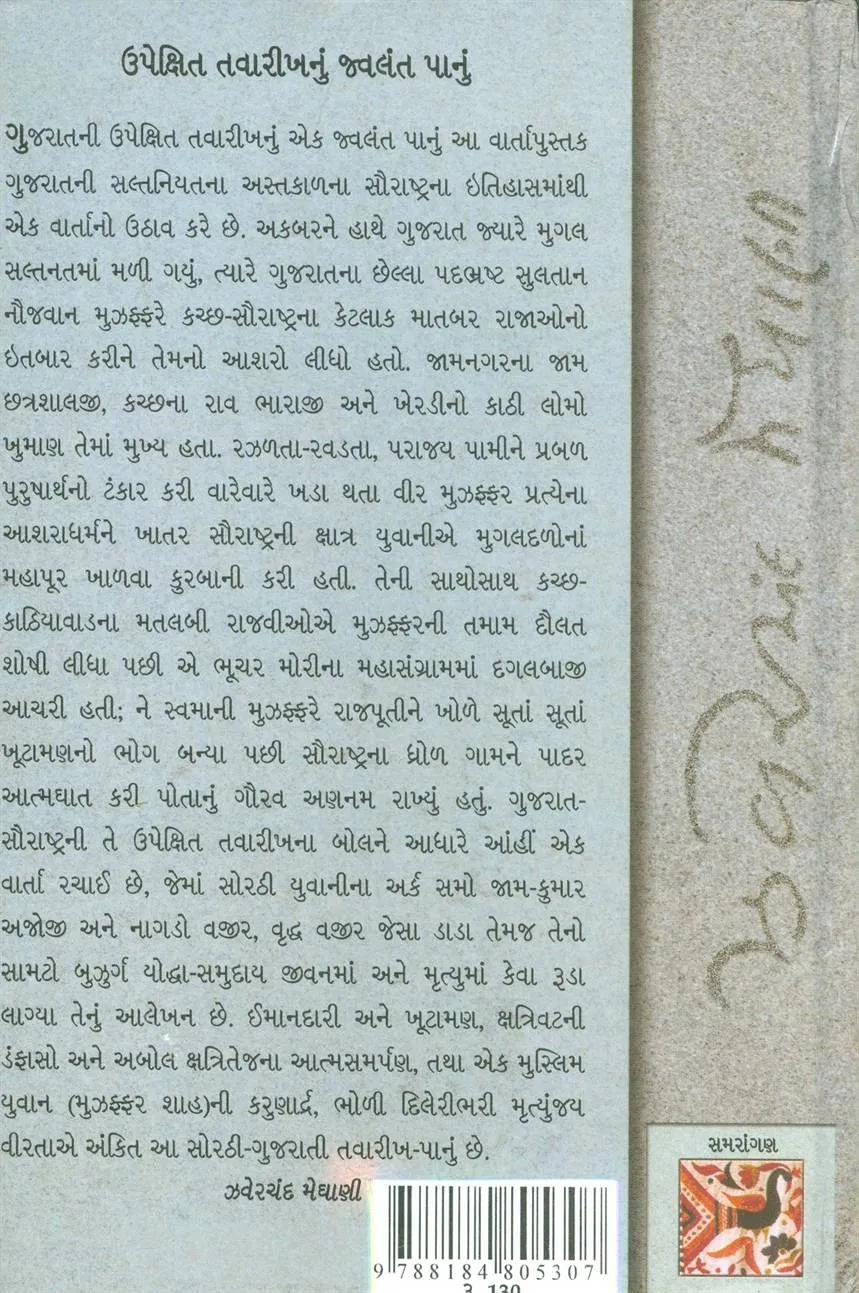 ઉપેક્ષિત તવારીખનું જ્વલંત પાનું
ગુજરાતની ઉપેક્ષિત તવારીખનું એક જ્વલંત પાનું આ વાર્તાપુસ્તક
ગુજરાતની સલ્તનિયતના અસ્તકાળના સૌરાષ્ટ્રના ઇતિહાસમાંથી
એક વાર્તાનો ઉઠાવ કરે છે. અકબરને હાથે ગુજરાત જ્યારે મુગલ
સલ્તનતમાં મળી ગયું, ત્યારે ગુજરાતના છેલ્લા પદભ્રષ્ટ સુલતાન
નૌજવાન મુઝફ્ફરે કચ્છ-સૌરાષ્ટ્રના કેટલાક માતબર રાજાઓનો
ઇતબાર કરીને તેમનો આશરો લીધો હતો. જામનગરના જામ
છત્રશાલજી, કચ્છના રાવ ભારાજી અને ખેરડીનો કાઠી લોમો
ખુમાણ તેમાં મુખ્ય હતા. રઝળતા-રવડતા, પરાજય પામીને પ્રબળ
પુરુષાર્થનો ટંકાર કરી વારેવારે ખડા થતા વીર મુઝફ્ફર પ્રત્યેના
આશરાધર્મને ખાતર સૌરાષ્ટ્રની ક્ષાત્ર યુવાનીએ મુગલદળોનાં
મહાપૂર ખાળવા કુરબાની કરી હતી. તેની સાથોસાથ કચ્છ-
કાઠિયાવાડના મતલબી રાજવીઓએ મુઝફ્ફરની તમામ દૌલત
શોષી લીધા પછી એ ભૂચર મોરીના મહાસંગ્રામમાં દગલબાજી
આચરી હતી; ને સ્વમાની મુઝફ્ફરે રાજપૂતીને ખોળે સૂતાં સૂતાં
ખૂટામણનો ભોગ બન્યા પછી સૌરાષ્ટ્રના ધ્રોળ ગામને પાદર
આત્મઘાત કરી પોતાનું ગૌરવ અણનમ રાખ્યું હતું. ગુજરાત-
સૌરાષ્ટ્રની તે ઉપેક્ષિત તવારીખના બોલને આધારે આંહીં એક
વાર્તા રચાઈ છે, જેમાં સોરઠી યુવાનીના અર્ક સમો જામ-કુમાર
અજોજી અને નાગડો વજીર, વૃદ્ધ વજીર જેસા ડાડા તેમજ તેનો
સામટો બુઝુર્ગ યોદ્ધા-સમુદાય જીવનમાં અને મૃત્યુમાં કેવા રૂડા
લાગ્યા તેનું આલેખન છે. ઈમાનદારી અને ખૂટામણ, ક્ષત્રિવટની
ડંફાસો અને અબોલ ક્ષત્રિતેજના આત્મસમર્પણ, તથા એક મુસ્લિમ
યુવાન (મુઝફ્ફર શાહ)ની કરુણાર્દ્ર, ભોળી દિલેરીભરી મૃત્યુંજય
વીરતાએ અંકિત આ સોરઠી-ગુજરાતી તવારીખ-પાનું છે.
ઝવેરચંદ મેઘાણી
9 788184 805307
રૂ 130
ઝવેરચંદ મેઘાણી
સમરાંગણ